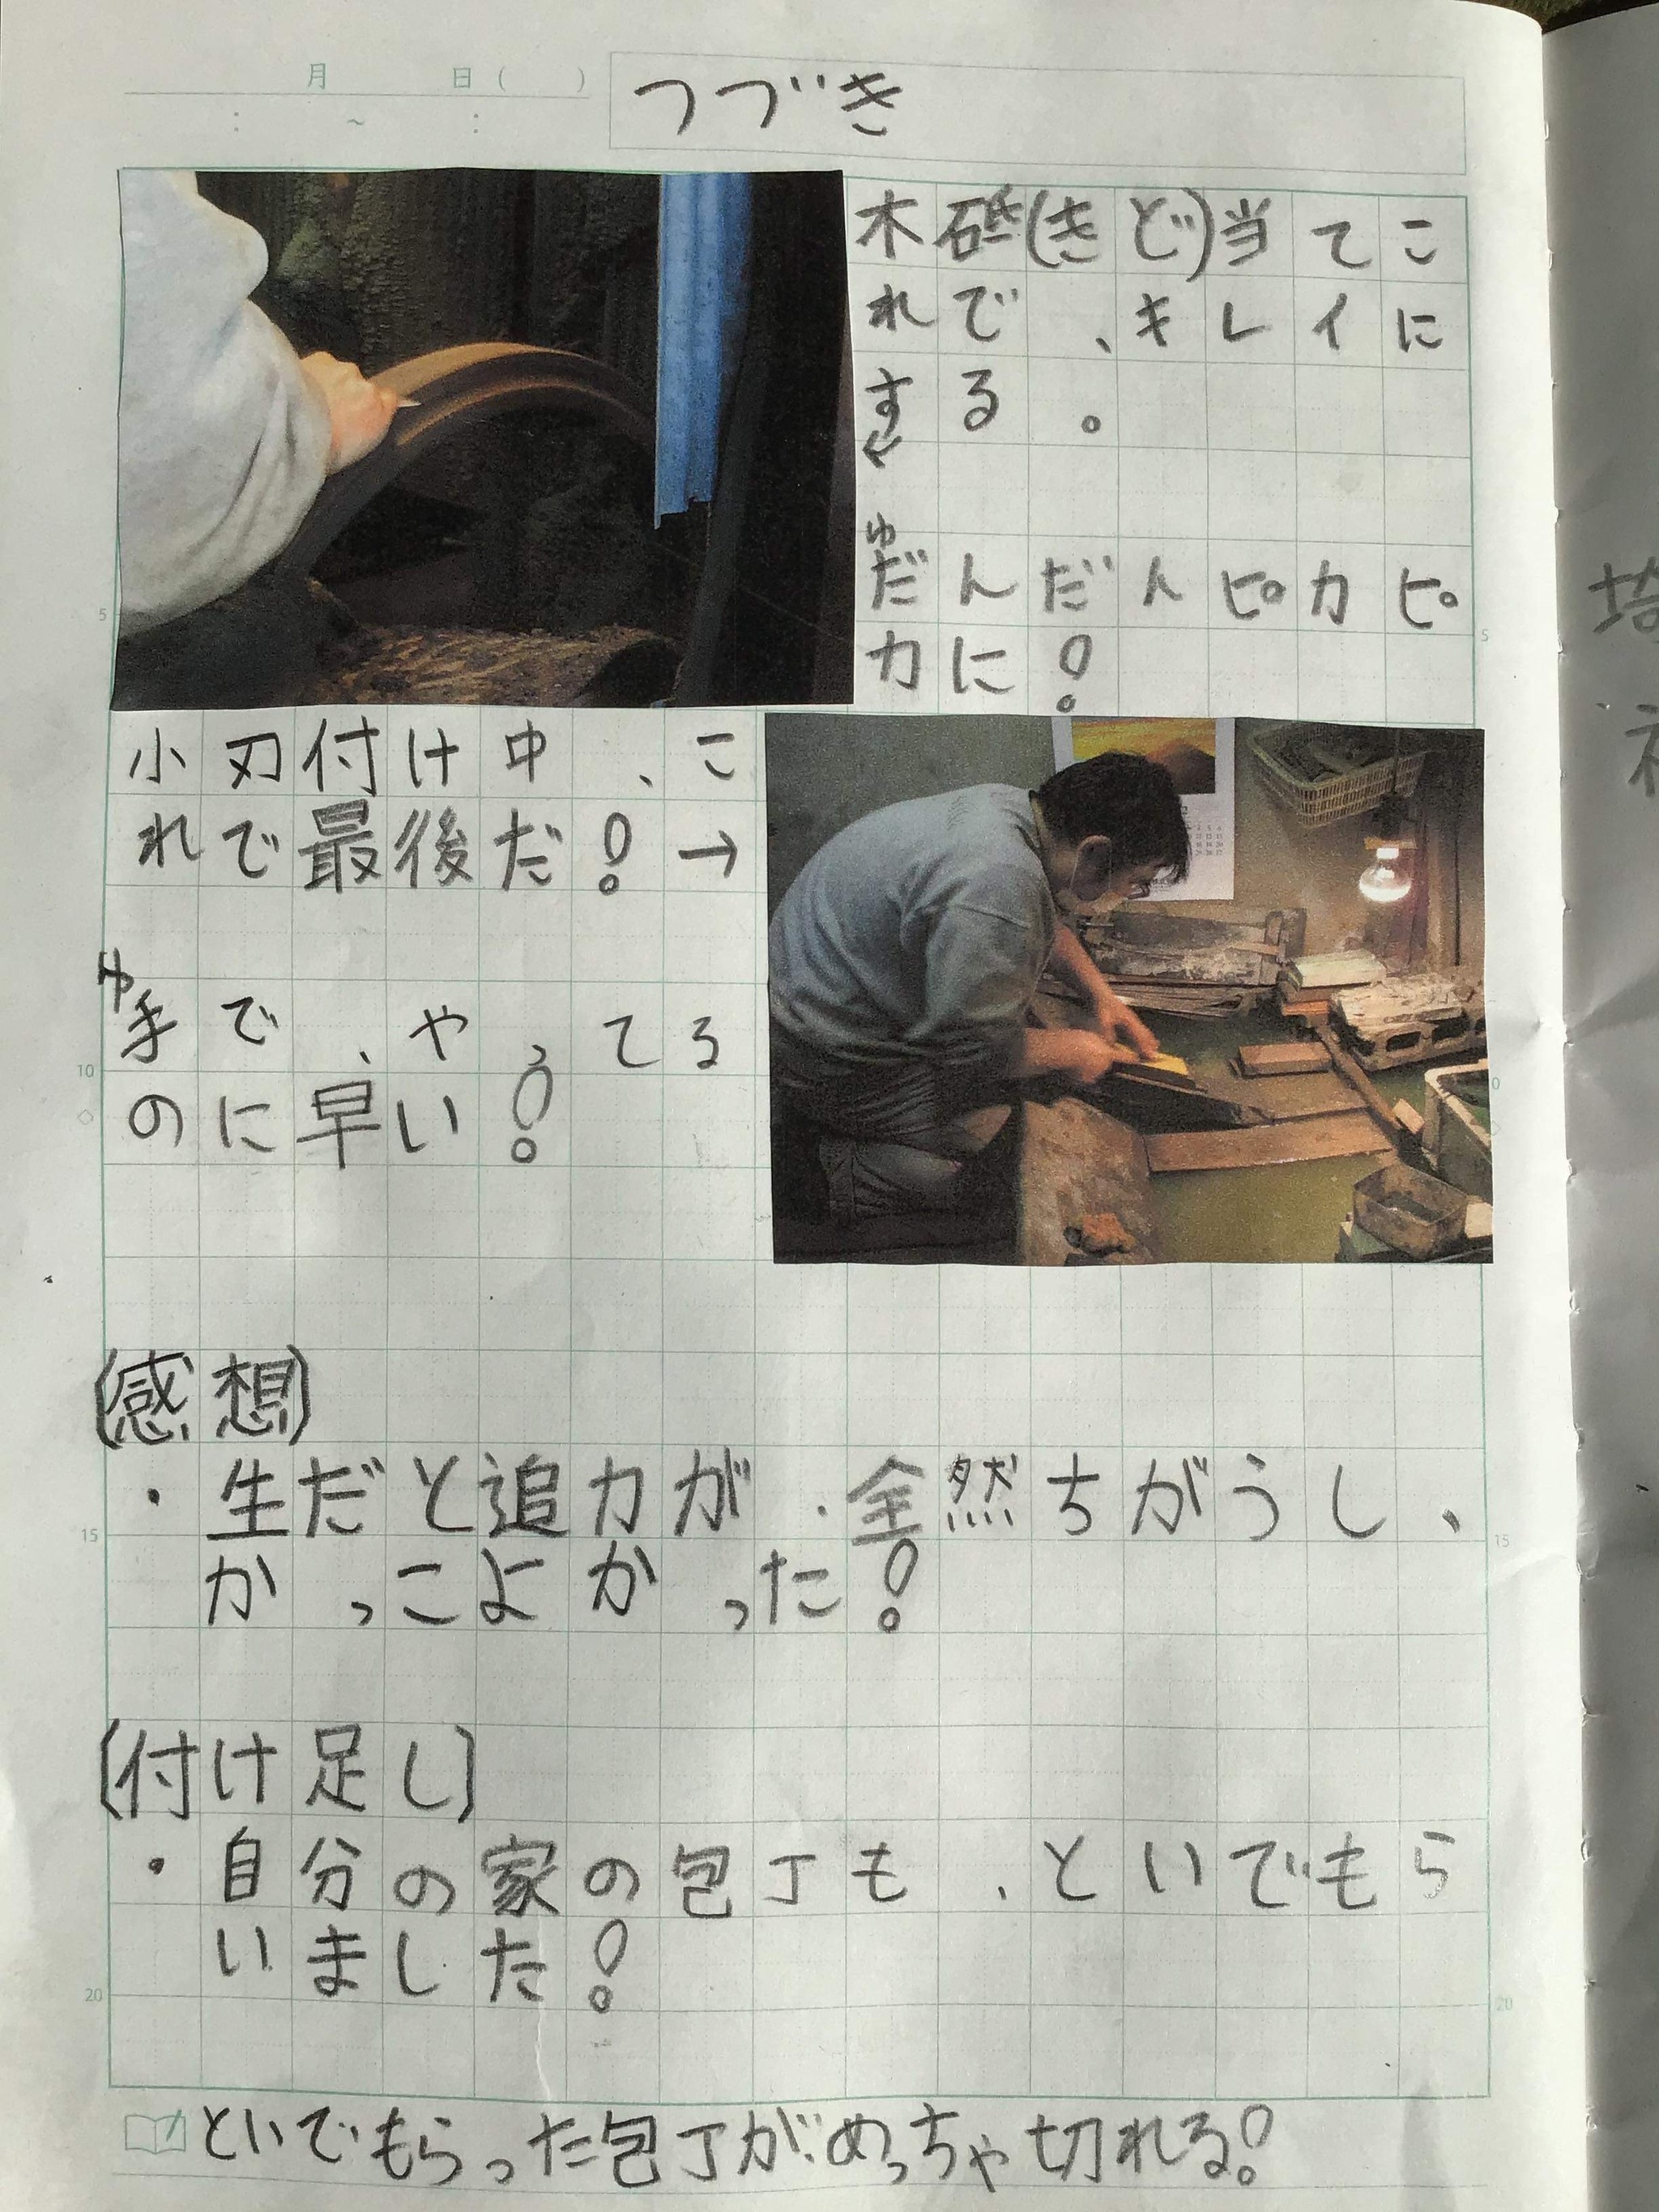 月 日( )
: ~ :
つづき
木砥(きど)当てこ
れで、キレイに
する。
←
ゆ
だんだんピカピ
カに!
小刃付け中、こ
れで最後だ!→
ゆ
手で、やってる
のに早い!
(感想)
・生だと追力が、全然ちがうし、
かっこよかった!
(付け足し)
・自分の家の包丁も、といでもら
いました!
といでもらった包丁がめっちゃ切れる!
5
5
10
15
15
20
20